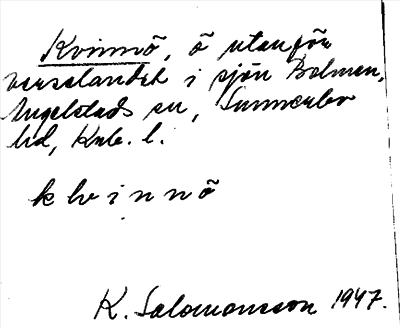 Kvinnö, ö utanför
vensalandet i sjön Bolmen,
Angelstads sn, Sunnerbo
hd, Krb. l.
k l v i n n ö
K. Salomonsson 1947.